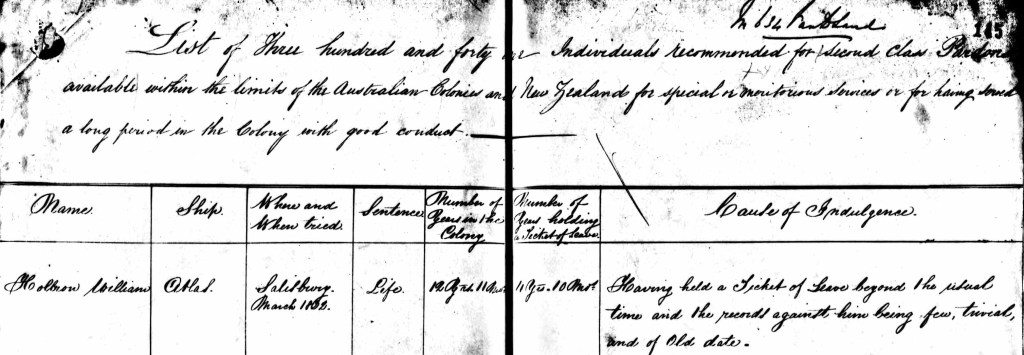 145
List of Three hundred and forty Individuals recommended for second class Pardons
available within the limits of the Australian Colonies and New Zealand for special or meritorious services or for having served
a long period in the Colony with good conduct.
Name. Ship. Where and When tried. Sentence Number of Years in the Colony Number of Years holding a Ticket of Leave Cause of Indulgence.
William Atlas. Salisbury. Life. 11 Yrs. 10 Mos. Having held a Ticket of Leave beyond the usual
March time and the records against him being few, trivial,
and of Old date.